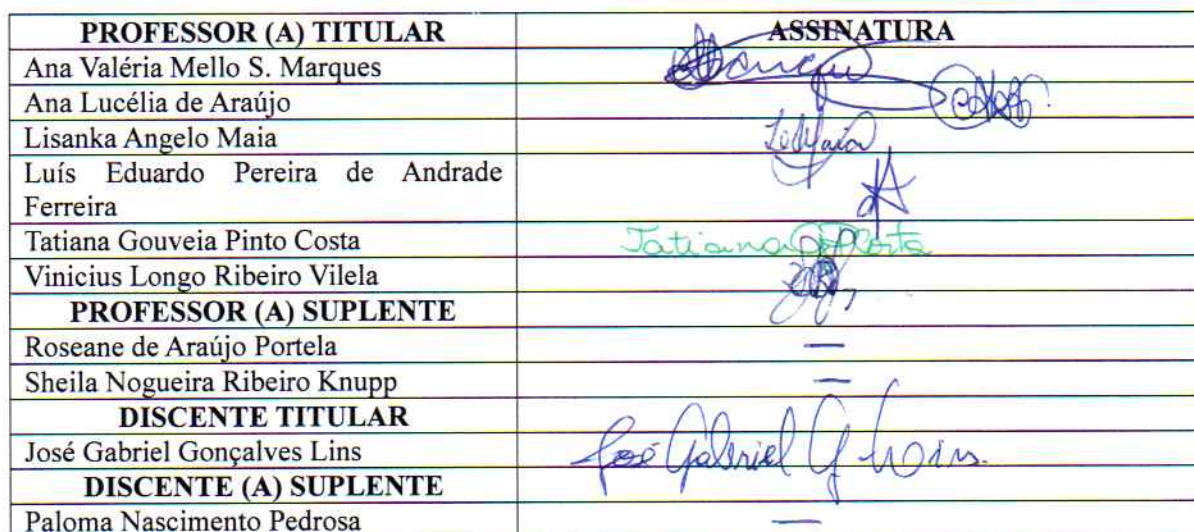 PROFESSOR (A) TITULAR ASSINATURA
Ana Valéria Mello S. Marques
Ana Lucélia de Araújo
Lisanka Angelo Maia
Luís Eduardo Pereira de Andrade
Ferreira
Tatiana Gouveia Pinto Costa Tatiana Costa
Vinicius Longo Ribeiro Vilela
PROFESSOR (A) SUPLENTE
Roseane de Araújo Portela —
Sheila Nogueira Ribeiro Knupp —
DISCENTE TITULAR
José Gabriel Gonçalves Lins José Gabriel G. Lins.
DISCENTE (A) SUPLENTE
Paloma Nascimento Pedrosa —